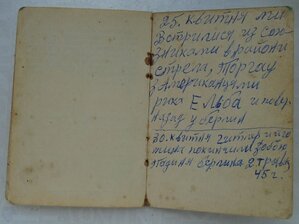 25. квітня ми
встрилися из Сою
зниками в районі
стрела, Торгау
з Американцями
рика Ельба и пову
назад у берлин
30. квітня гитлер и його
покинчили
падиня берлина 2 трав
45 г.